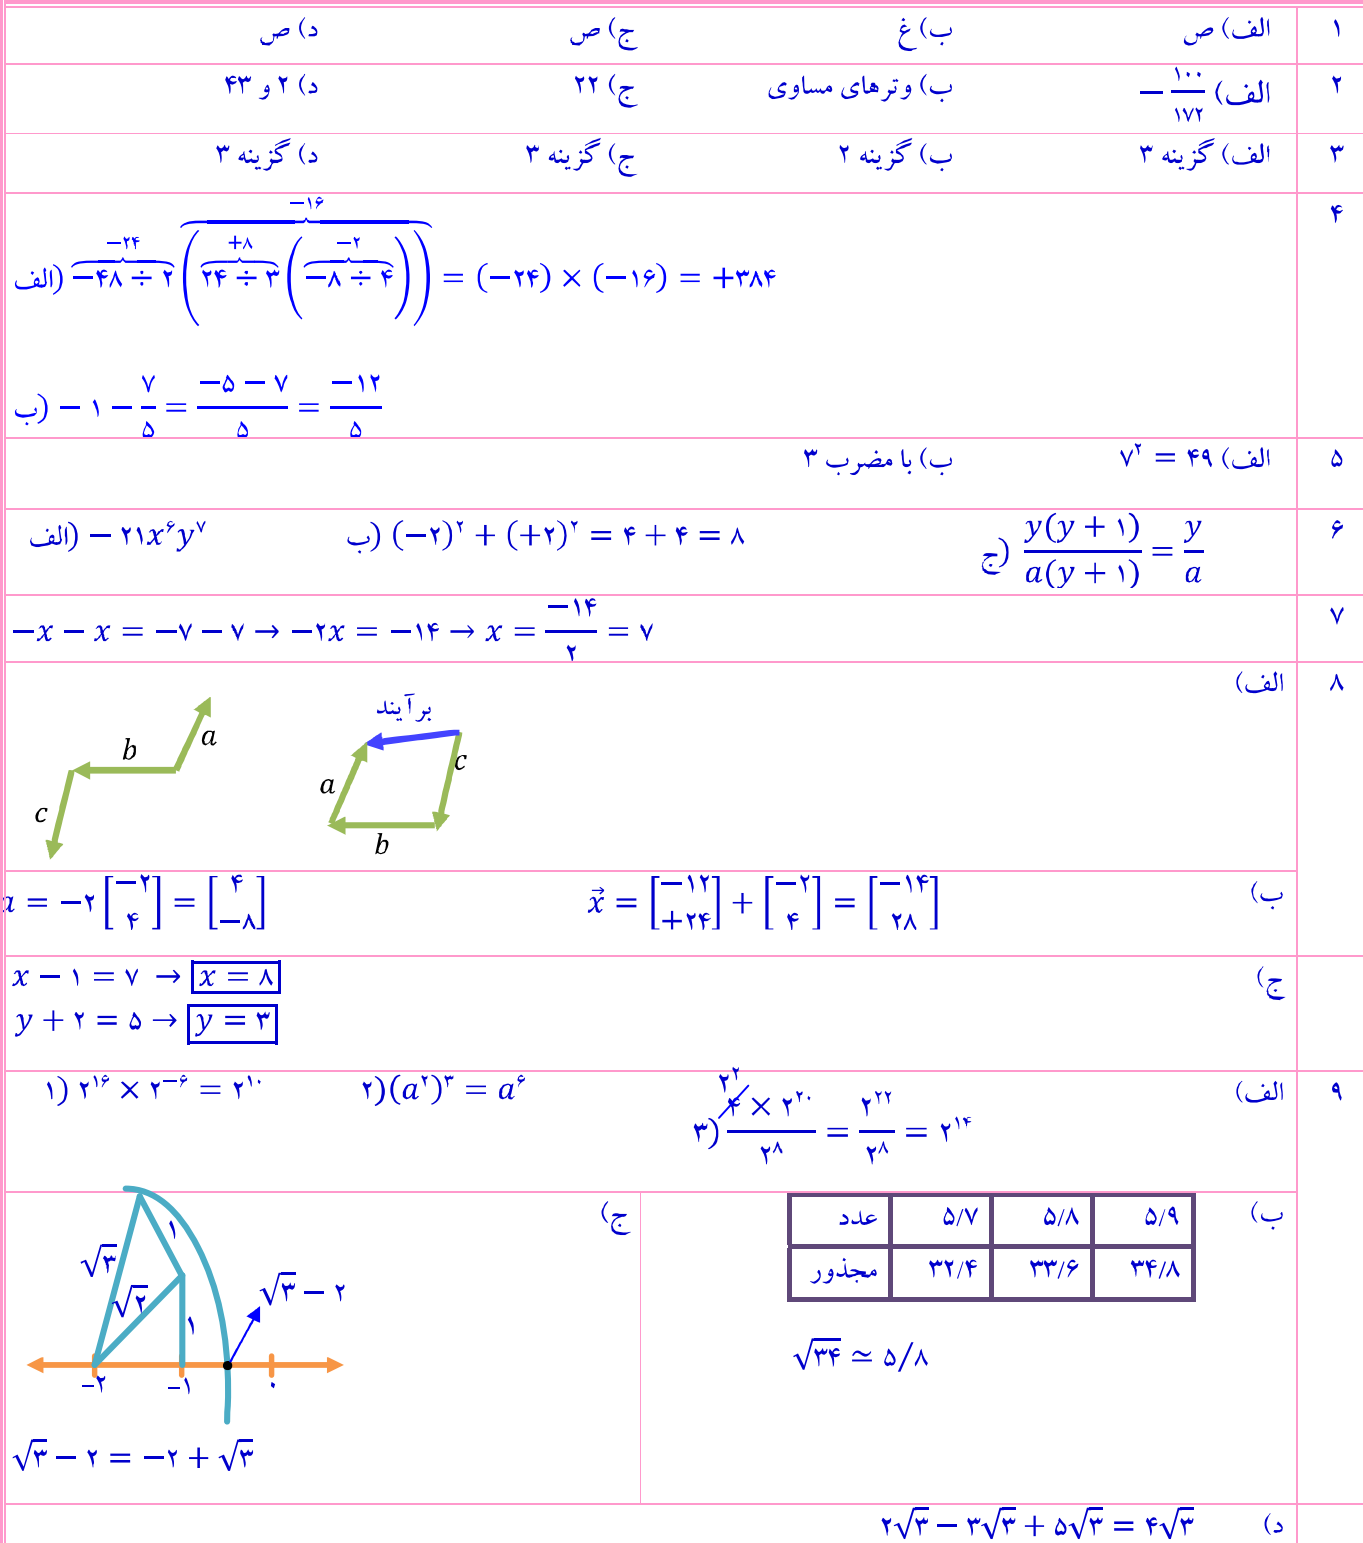 ۱ الف) ص ب) غ ج) ص د) ص
۲ الف) −۱۰۰/۱۷۲ ب) وترهای مساوی ج) ۲۲ د) ۲ و ۴۳
۳ الف) گزینه ۳ ب) گزینه ۲ ج) گزینه ۳ د) گزینه ۳
۴
−۱۶
−۲۴ +۸ −۲
الف) −۴۸ ÷ ۲ (۲۴ ÷ ۳ (−۸ ÷ ۴)) = (−۲۴) × (−۱۶) = +۳۸۴
ب) − ۱ − ۷/۵ = (−۵ − ۷)/۵ = −۱۲/۵
۵ الف) ۷² = ۴۹ ب) با مضرب ۳
۶ الف) − ۲۱x⁶y⁷ ب) (−۲)² + (+۲)² = ۴ + ۴ = ۸ ج) y(y + ۱)/a(y + ۱) = y/a
۷ −x − x = −۷ − ۷ → −۲x = −۱۴ → x = −۱۴/۲ = ۷
۸ الف)
برآیند
a b c
a b c
ب) a = −۲ [−۲ ۴] = [۴ −۸] x⃗ = [−۱۲ +۲۴] + [−۲ ۴] = [−۱۴ ۲۸]
ج) x − ۱ = ۷ → x = ۸
y + ۲ = ۵ → y = ۳
۹ الف) ۱) ۲¹⁶ × ۲⁻⁶ = ۲¹⁰ ۲) (a²)³ = a⁶ ۳) ۲² ۴ × ۲²⁰/۲⁸ = ۲²²/۲⁸ = ۲¹⁴
ب)
عدد ۵/۷ ۵/۸ ۵/۹
مجذور ۳۲/۴ ۳۳/۶ ۳۴/۸
√۳۴ ≃ ۵/۸
ج)
۱
√۳
√۲
۱
√۳ − ۲
−۲ −۱ ۰
√۳ − ۲ = −۲ + √۳
د) ۲√۳ − ۳√۳ + ۵√۳ = ۴√۳